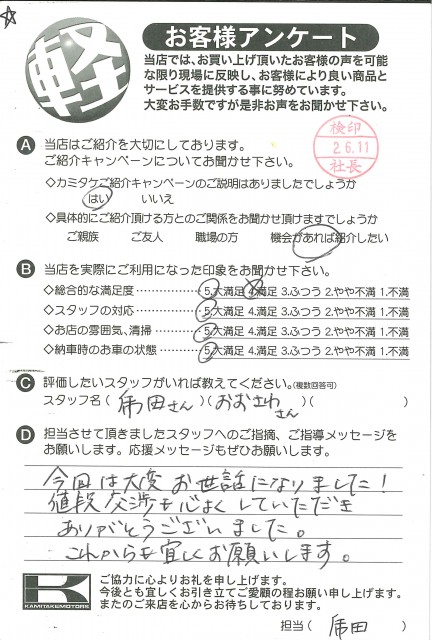 軽
お客様アンケート
当店では、お買い上げ頂いたお客様の声を可能
な限り現場に反映し、お客様により良い商品と
サービスを提供する事に努めています。
大変お手数ですが是非お声をお聞かせ下さい。
検印
26.11
社長
A 当店はご紹介を大切にしております。
ご紹介キャンペーンについてお聞かせ下さい。
◇カミタケご紹介キャンペーンのご説明はありましたでしょうか
はい いいえ
◇具体的にご紹介頂ける方とのご関係をお聞かせ頂けますでしょうか
ご親族 ご友人 職場の方 機会があれば紹介したい
B 当店を実際にご利用になった印象をお聞かせ下さい。
◇総合的な満足度………5.大満足 4.満足 3.ふつう 2.やや不満 1.不満
◇スタッフの対応………5.大満足 4.満足 3.ふつう 2.やや不満 1.不満
◇お店の雰囲気、清掃…5.大満足 4.満足 3.ふつう 2.やや不満 1.不満
◇納車時のお車の状態…5.大満足 4.満足 3.ふつう 2.やや不満 1.不満
C 評価したいスタッフがいれば教えてください。(複数回答可)
スタッフ名( 田さん )( おおさわさん )( )
D 担当させて頂きましたスタッフへのご指摘、ご指導メッセージを
お願いします。応援メッセージもぜひお願いします。
今回は大変お世話になりました!
値段交渉も心よくしていただき
ありがとうございました。
これからも宜しくお願いします。
K
KAMITAKEMOTORS
ご協力に心よりお礼を申し上げます。
今後とも宜しくお引き立てご愛顧の程お願い申し上げます。
またのご来店を心からお待ちしております。
担当( 田 )